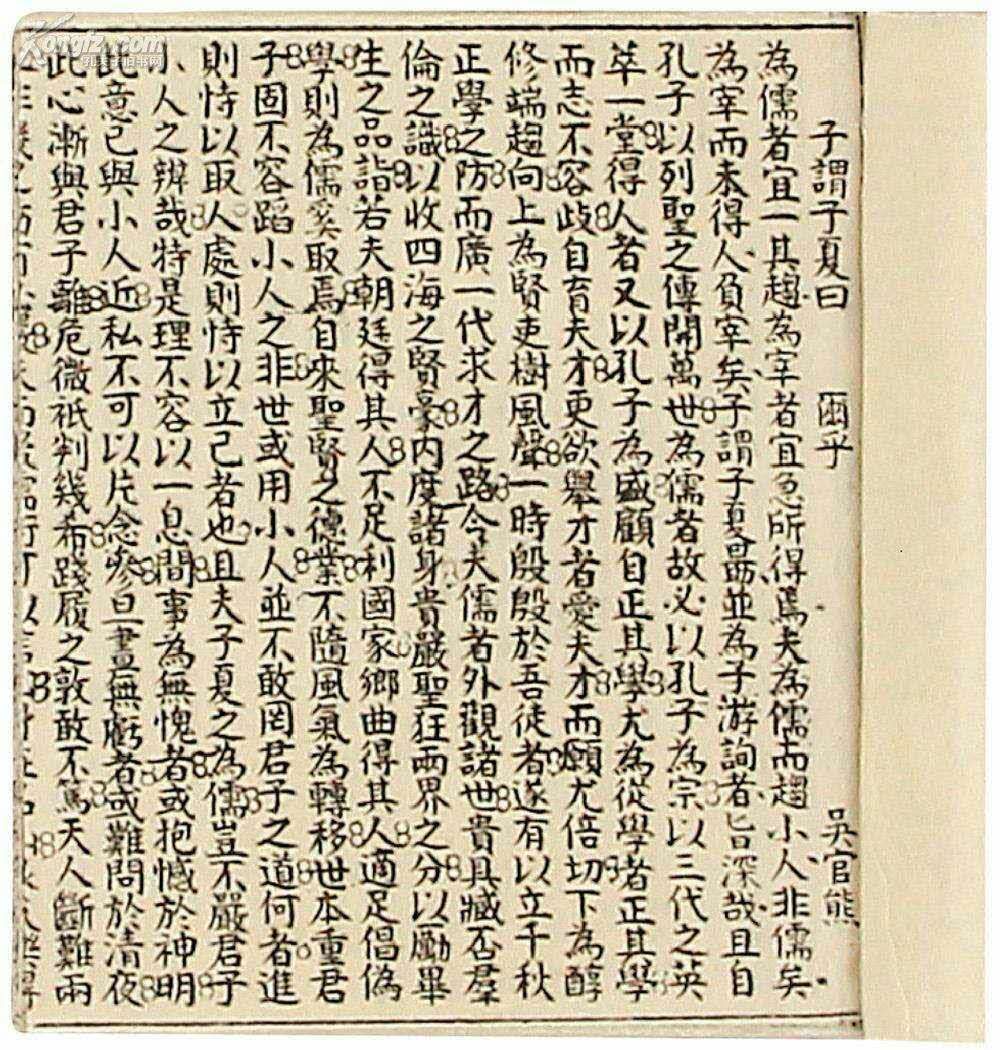 子謂子夏曰 兩乎 吳官熊
為儒者宜一其趨為宰者宜急所得焉夫為儒而趨小人非儒矣
為宰而未得人負宰矣子謂子夏曷並為子游詢者旨深哉且自
孔子以列聖之傳開萬世為儒者故必以孔子為宗以三代之英
萃一堂得人者又以孔子為盛顧自正其學尤為從學者正其學
而志不容歧自育夫才更欲舉才者愛夫才而願尤倍切下為醇
修端趨向上為賢吏樹風聲一時殷殷於吾徒者遂有以立千秋
正學之防而廣一代求才之路今夫儒者外觀諸世貴具臧否羣
倫之識以收四海之賢豪內度諸身貴嚴聖狂兩界之分以勵畢
生之品詣若夫朝廷得其人不足利國家鄉曲得其人適足倡偽
學則為儒奚取焉自來聖賢之德業不隨風氣為轉移世本重君
子固不容蹈小人之非世或用小人並不敢罔君子之道何者進
則恃以取人處則恃以立己者也且夫子夏之為儒豈不嚴君子
小人之辨哉特是理不容以一息間事為無愧者或抱憾於神明
此意已與小人近私不可以片念參旦晝無虧者或難問於清夜
此心漸與君子離危微祇判幾希踐履之敦敢不篤天人斷難兩
Kongfz.com
孔夫子旧书网